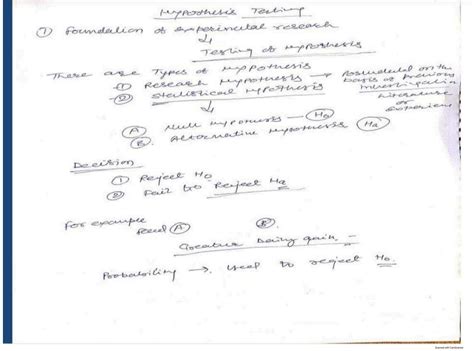 Hypothesis Testing
① Foundation of experimental research
↓
Testing of Hypothesis
There are Types of Hypothesis
① Research Hypothesis → Postulated on the basis of previous investigation
Literature
or
② Statistical Hypothesis
↓
Ⓐ Null Hypothesis → H₀
Ⓑ Alternative Hypothesis Ha
Decision
① Reject H₀
② Fail to Reject Ha
For example
feed Ⓐ Ⓑ
Greater gain
Probability → Used to reject H₀.